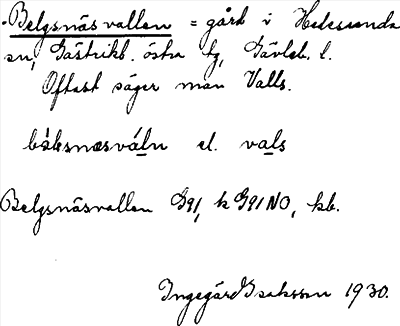 Belgsnäsvallen = gård i Hedesunda
sn, Gästrikl. östra tg, Gävleb. l.
Oftast säger man Valls.
bælksnæsváln el. vals
Belgsnäsvallen G91, k G91NO, kb.
Ingegärd Isaksson 1930.